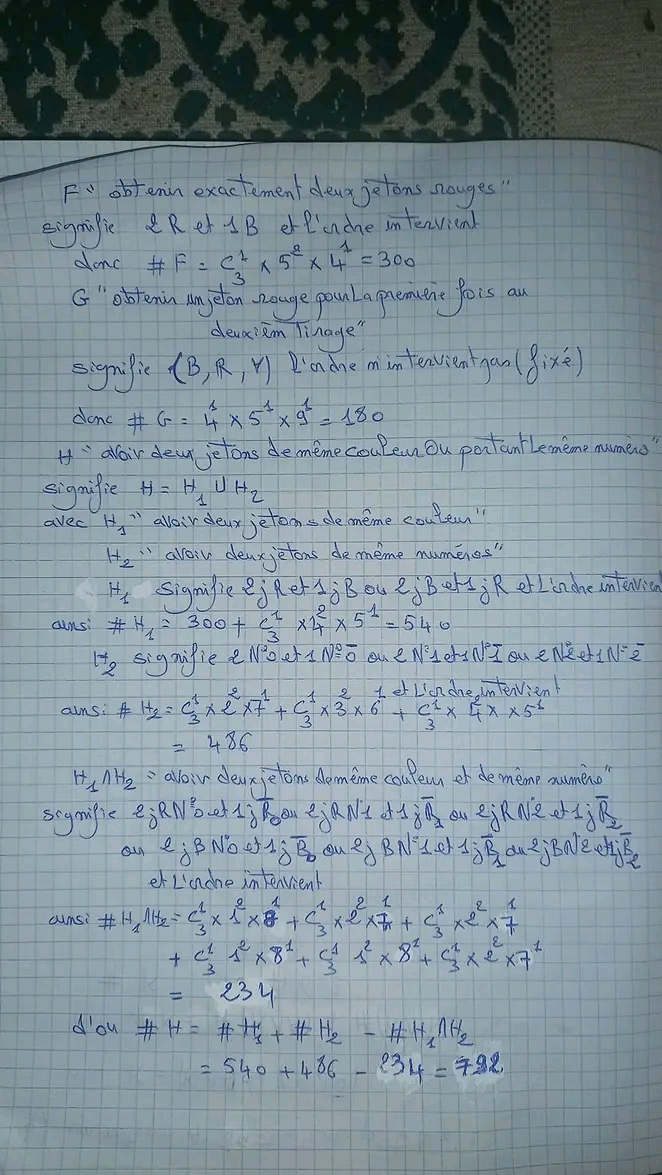 F " obtenir exactement deux jetons rouges"
signifie 2R et 1B et l'ordre intervient
donc # F = C₃¹ × 5² × 4¹ = 300
G " obtenir un jeton rouge pour la première fois au
deuxièm Tirage"
signifie (B, R, V) l'ordre n'intervient pas (fixé)
donc # G = 4¹ × 5¹ × 9¹ = 180
H " avoir deux jetons de même couleur Ou portant le même numéro"
signifie H = H₁ U H₂
avec H₁ " avoir deux jetons de même couleur"
H₂ " avoir deux jetons de même numéros"
H₁ signifie 2jR et 1jB ou 2jB et 1jR et L'ordre intervien
ainsi # H₁ = 300 + C₃¹ × 4² × 5¹ = 540
H₂ signifie 2 N°0 et 1 N°0̅ ou 2 N°1 et 1 N°1̅ ou 2 N°2 et 1 N°2̅
et L'ordre intervient
ainsi # H₂ = C₃¹ × 2² × 7¹ + C₃¹ × 3² × 6¹ + C₃¹ × 4² × 5¹
= 486
H₁ ∩ H₂ = avoir deux jetons de même couleur et de même numéro"
signifie 2jRN°0 et 1j R̅₀ ou 2jRN°1 et 1j R̅₁ ou 2jRN°2 et 1j R̅₂
ou 2jBN°0 et 1j B̅₀ ou 2jBN°1 et 1j B̅₁ ou 2jBN°2 et 1j B̅₂
et L'ordre intervient
ainsi # H₁∩H₂ = C₃¹ × 1² × 8¹ + C₃¹ × 2² × 7¹ + C₃¹ × 2² × 7¹
+ C₃¹ 1² × 8¹ + C₃¹ 1² × 8¹ + C₃¹ × 2² × 7¹
= 234
d'ou # H = # H₁ + # H₂ - # H₁∩H₂
= 540 + 486 - 234 = 792